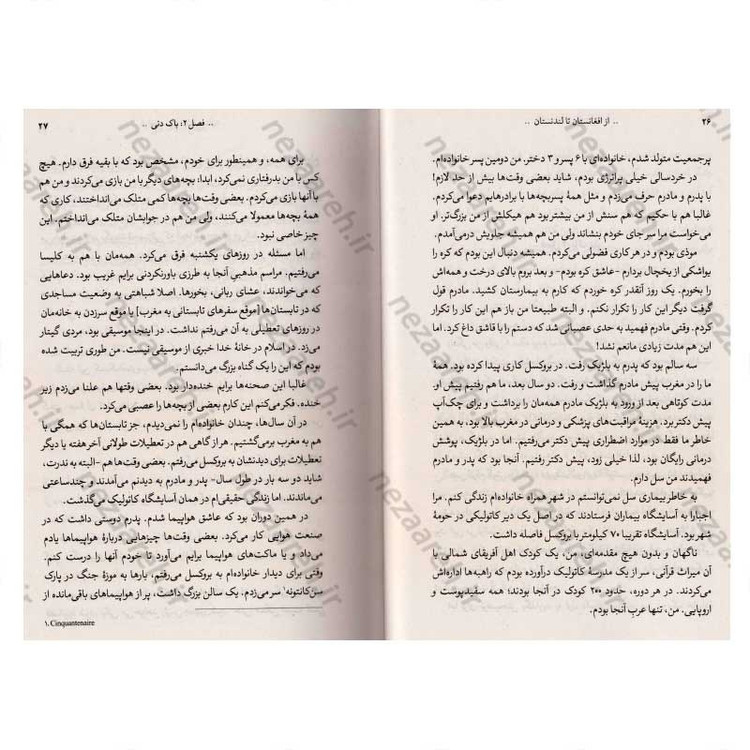 ۲۶
.. از افغانستان تا لندنستان ..
پرجمعیت متولد شدم، خانواده‌ای با ۶ پسر و ۳ دختر. من دومین پسر خانواده‌ام.
در خردسالی خیلی پرانرژی بودم، شاید بعضی وقت‌ها بیش از حد لازم!
با پدرم و مادرم حرف می‌زدم و مثل همهٔ پسربچه‌ها با برادرهایم دعوا می‌کردم.
غالبا هم با حکیم که هم سنش از من بیشتر بود هم هیکلش از من بزرگ‌تر. او
می‌خواست مرا سر جای خودم بنشاند ولی من هم همیشه جلویش درمی‌آمدم.
موذی بودم و در هر کاری فضولی می‌کردم. همیشه دنبال این بودم که کره را
یواشکی از یخچال بردارم -عاشق کره بودم- و بعد بروم بالای درخت و همه‌اش
را بخورم. یک روز آنقدر کره خوردم که کارم به بیمارستان کشید. مادرم قول
گرفت دیگر این کار را تکرار نکنم. و البته طبیعتا من باز هم این کار را تکرار
کردم. وقتی مادرم فهمید به حدی عصبانی شد که دستم را با قاشق داغ کرد. اما
این هم مدت زیادی مانعم نشد!
سه سالم بود که پدرم به بلژیک رفت. در بروکسل کاری پیدا کرده بود. همهٔ
ما را در مغرب پیش مادرم گذاشت و رفت. دو سال بعد، ما هم رفتیم پیش او.
مدت کوتاهی بعد از ورود به بلژیک مادرم همه‌مان را برداشت و برای چک‌آپ
پیش دکتر برد. هزینهٔ مراقبت‌های پزشکی و درمانی در مغرب بالا بود، به همین
خاطر ما فقط در موارد اضطراری پیش دکتر می‌رفتیم. اما در بلژیک، پوشش
درمانی رایگان بود، لذا خیلی زود، پیش دکتر رفتیم. آنجا بود که پدر و مادرم
فهمیدند من سل دارم.
به خاطر بیماری سل نمی‌توانستم در شهر همراه خانواده‌ام زندگی کنم. مرا
اجبارا به آسایشگاه بیماران فرستادند که در اصل یک دیر کاتولیکی در حومهٔ
شهر بود. آسایشگاه تقریبا ۷۰ کیلومتر با بروکسل فاصله داشت.
ناگهان و بدون هیچ مقدمه‌ای، من، یک کودک اهل آفریقای شمالی با
آن میراث قرآنی، سر از یک مدرسهٔ کاتولیک درآورده بودم که راهبه‌ها اداره‌اش
می‌کردند. در هر دوره، حدود ۲۰۰ کودک در آنجا بودند؛ همه سفیدپوست و
اروپایی. من، تنها عرب آنجا بودم.
.. فصل ۲: باک دنی ..
۲۷
برای همه، و همینطور برای خودم، مشخص بود که با بقیه فرق دارم. هیچ
کس با من بدرفتاری نمی‌کرد، ابدا؛ بچه‌های دیگر با من بازی می‌کردند و من هم
با آنها بازی می‌کردم. بعضی وقت‌ها بچه‌ها کمی متلک می‌انداختند، کاری که
همهٔ بچه‌ها معمولا می‌کنند، ولی من هم در جوابشان متلک می‌انداختم. این
چیز خاصی نبود.
اما مسئله در روزهای یکشنبه فرق می‌کرد. همه‌مان با هم به کلیسا
می‌رفتیم. مراسم مذهبیِ آنجا به طرزی باورنکردنی برایم غریب بود. دعاهایی
که می‌خواندند، عشای ربانی، بخورها. اصلا شباهتی به وضعیت مساجدی
که در تابستان‌ها [موقع سفرهای تابستانی به مغرب] یا موقع سرزدن به خانه‌مان
در روزهای تعطیلی به آن می‌رفتم نداشت. در اینجا موسیقی بود، مردی گیتار
می‌زد. در اسلام در خانهٔ خدا خبری از موسیقی نیست. من طوری تربیت شده
بودم که این را یک گناه بزرگ می‌دانستم.
غالبا این صحنه‌ها برایم خنده‌دار بود. بعضی وقتها هم علنا می‌زدم زیر
خنده. فکر می‌کنم این کارم بعضی از بچه‌ها را عصبی می‌کرد.
در آن سال‌ها، چندان خانواده‌ام را نمی‌دیدم، جز تابستان‌ها که همگی با
هم به مغرب برمی‌گشتیم. هر از گاهی هم در تعطیلات طولانی آخر هفته یا دیگر
تعطیلات برای دیدنشان به بروکسل می‌رفتم. بعضی وقت‌ها هم -البته به ندرت،
شاید دو سه بار در طول سال- پدر و مادرم به دیدنم می‌آمدند و چند ساعتی
می‌ماندند. اما زندگی حقیقی‌ام در همان آسایشگاه کاتولیک می‌گذشت.
در همین دوران بود که عاشق هواپیما شدم. پدرم دوستی داشت که در
صنعت هوایی کار می‌کرد. بعضی وقت‌ها چیزهایی دربارهٔ هواپیماها یادم
می‌داد و یا ماکت‌های هواپیما برایم می‌آورد تا خودم آنها را درست کنم.
وقتی برای دیدار خانواده‌ام به بروکسل می‌رفتم، بارها به موزهٔ جنگ در پارک
سن‌کانتونه۱ سر می‌زدم. یک سالن بزرگ داشت، پر از هواپیماهای باقی‌مانده از
۱. Cinquantenaire
nezaareh.ir